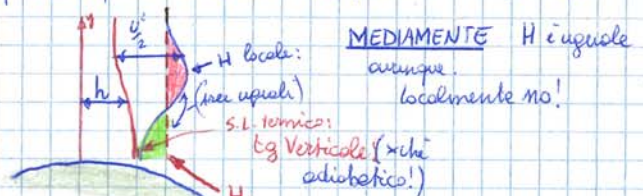 y
U²/2
h
H locale:
(aree uguali)
S.L. termico:
tg Verticale (xchè
adiabatico!)
H
MEDIAMENTE H è uguale
ovunque.
localmente no!